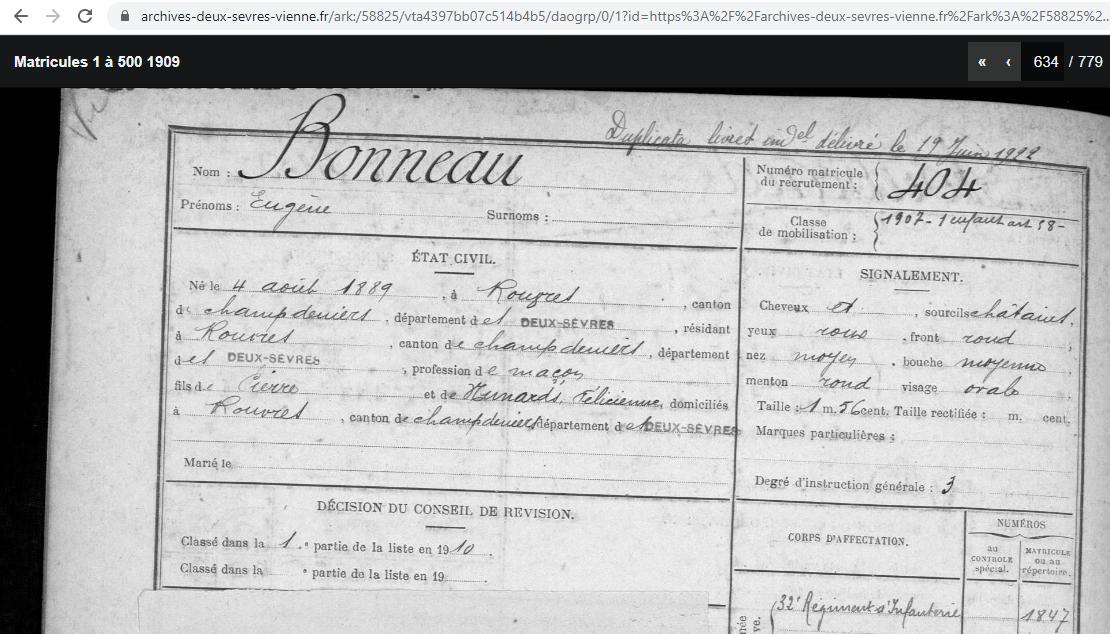 archives-deux-sevres-vienne.fr/ark:/58825/vta4397bb07c514b4b5/daogrp/0/1?id=https%3A%2F%2Farchives-deux-sevres-vienne.fr%2Fark%3A%2F58825%2...
Matricules 1 à 500 1909
« ‹ 634 / 779
Duplicata livret indel délivré le 19 Juin 1922
Nom : Bonneau
Prénoms : Eugène Surnoms :
Numéro matricule du recrutement : 404
Classe de mobilisation : 1907 - 1 enfant art 58 -
ÉTAT CIVIL.
Né le 4 août 1889, à Rouvres, canton
de Champdeniers, département des DEUX-SÈVRES, résidant
à Rouvres, canton de Champdeniers, département
des DEUX-SÈVRES, profession de maçon
fils de Pierre et de Félicienne, domiciliés
à Rouvres, canton de Champdeniers, département des DEUX-SÈVRES
Marié le
SIGNALEMENT.
Cheveux et, sourcils châtains,
yeux roux, front rond,
nez moyen, bouche moyenne
menton rond visage ovale
Taille : 1 m. 56 cent. Taille rectifiée : m. cent.
Marques particulières :
Degré d'instruction générale : 3
DÉCISION DU CONSEIL DE REVISION.
Classé dans la 1.e partie de la liste en 1910.
Classé dans la e partie de la liste en 19
CORPS D'AFFECTATION.
NUMÉROS
au CONTROLE spécial.
MATRICULE ou au répertoire.
32e Régiment d'Infanterie 1847